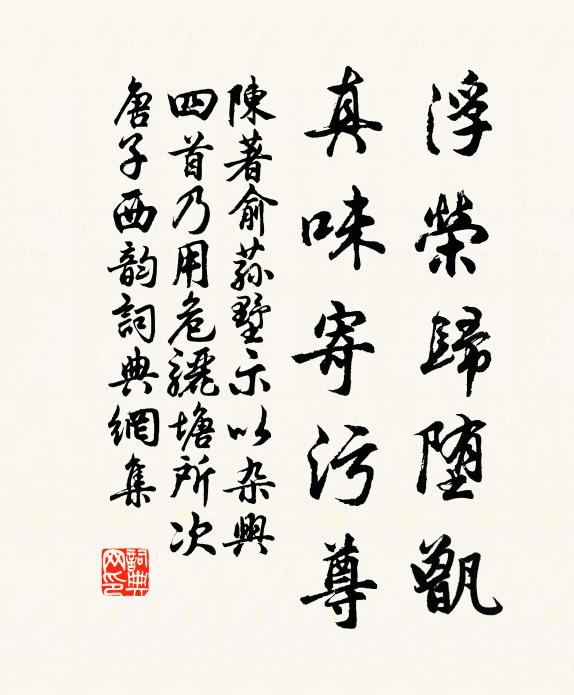 浮榮歸墮甑
真味寄污尊
陳著俞荪墅示以杂興
四首乃用危驪塘所次
唐子西韵詞典網集
詞典網印